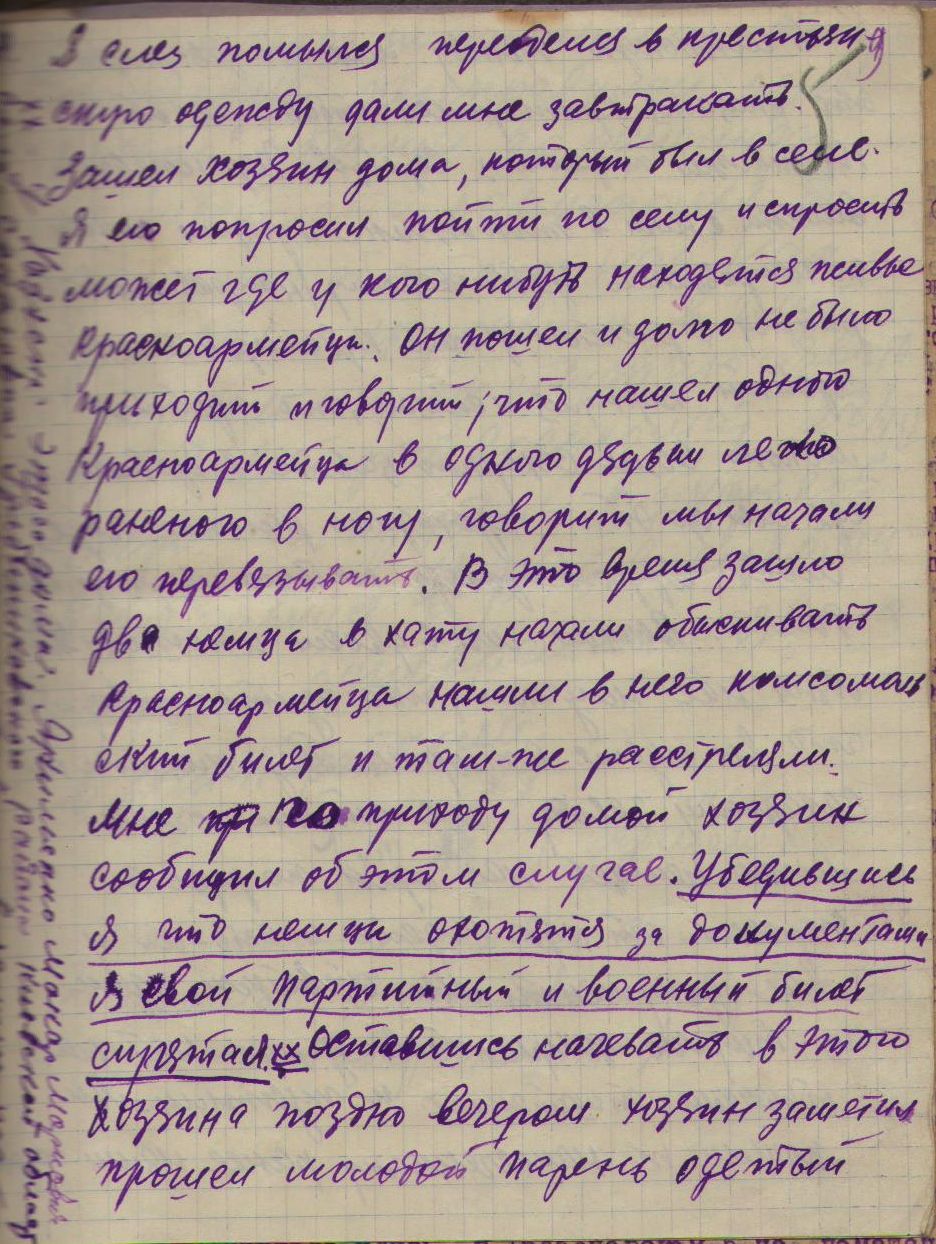 Я слез помылся переоделся в крестьян
скую одежду дали мне завтракать.
Зашел хозяин дома, который был в селе.
Я его попросил пойти по селу и спросить
может где у кого нибуть находятся живые
красноармейцы. Он пошел и долго не было
приходит и говорит, что нашел одного
Красноармейца в одного дядьки легко
раненого в ногу, говорит мы начали
его перевязывать. В это время зашло
два немца в хату начали обыскивать
красноармейца нашли в него комсомоль
ский билет и там-же расстреляли.
Мне по приходу домой хозяин
сообщил об этом случае. Убедившись
я что немцы охотятся за документами
я свой партийный и военный билет
спрятал. хх Оставшись начевать в этого
хозяина поздно вечером хозяин заметил
прошел молодой парень одетый
5
хх
Хозяин этого дома: Яхименко Макар
района Киевской област